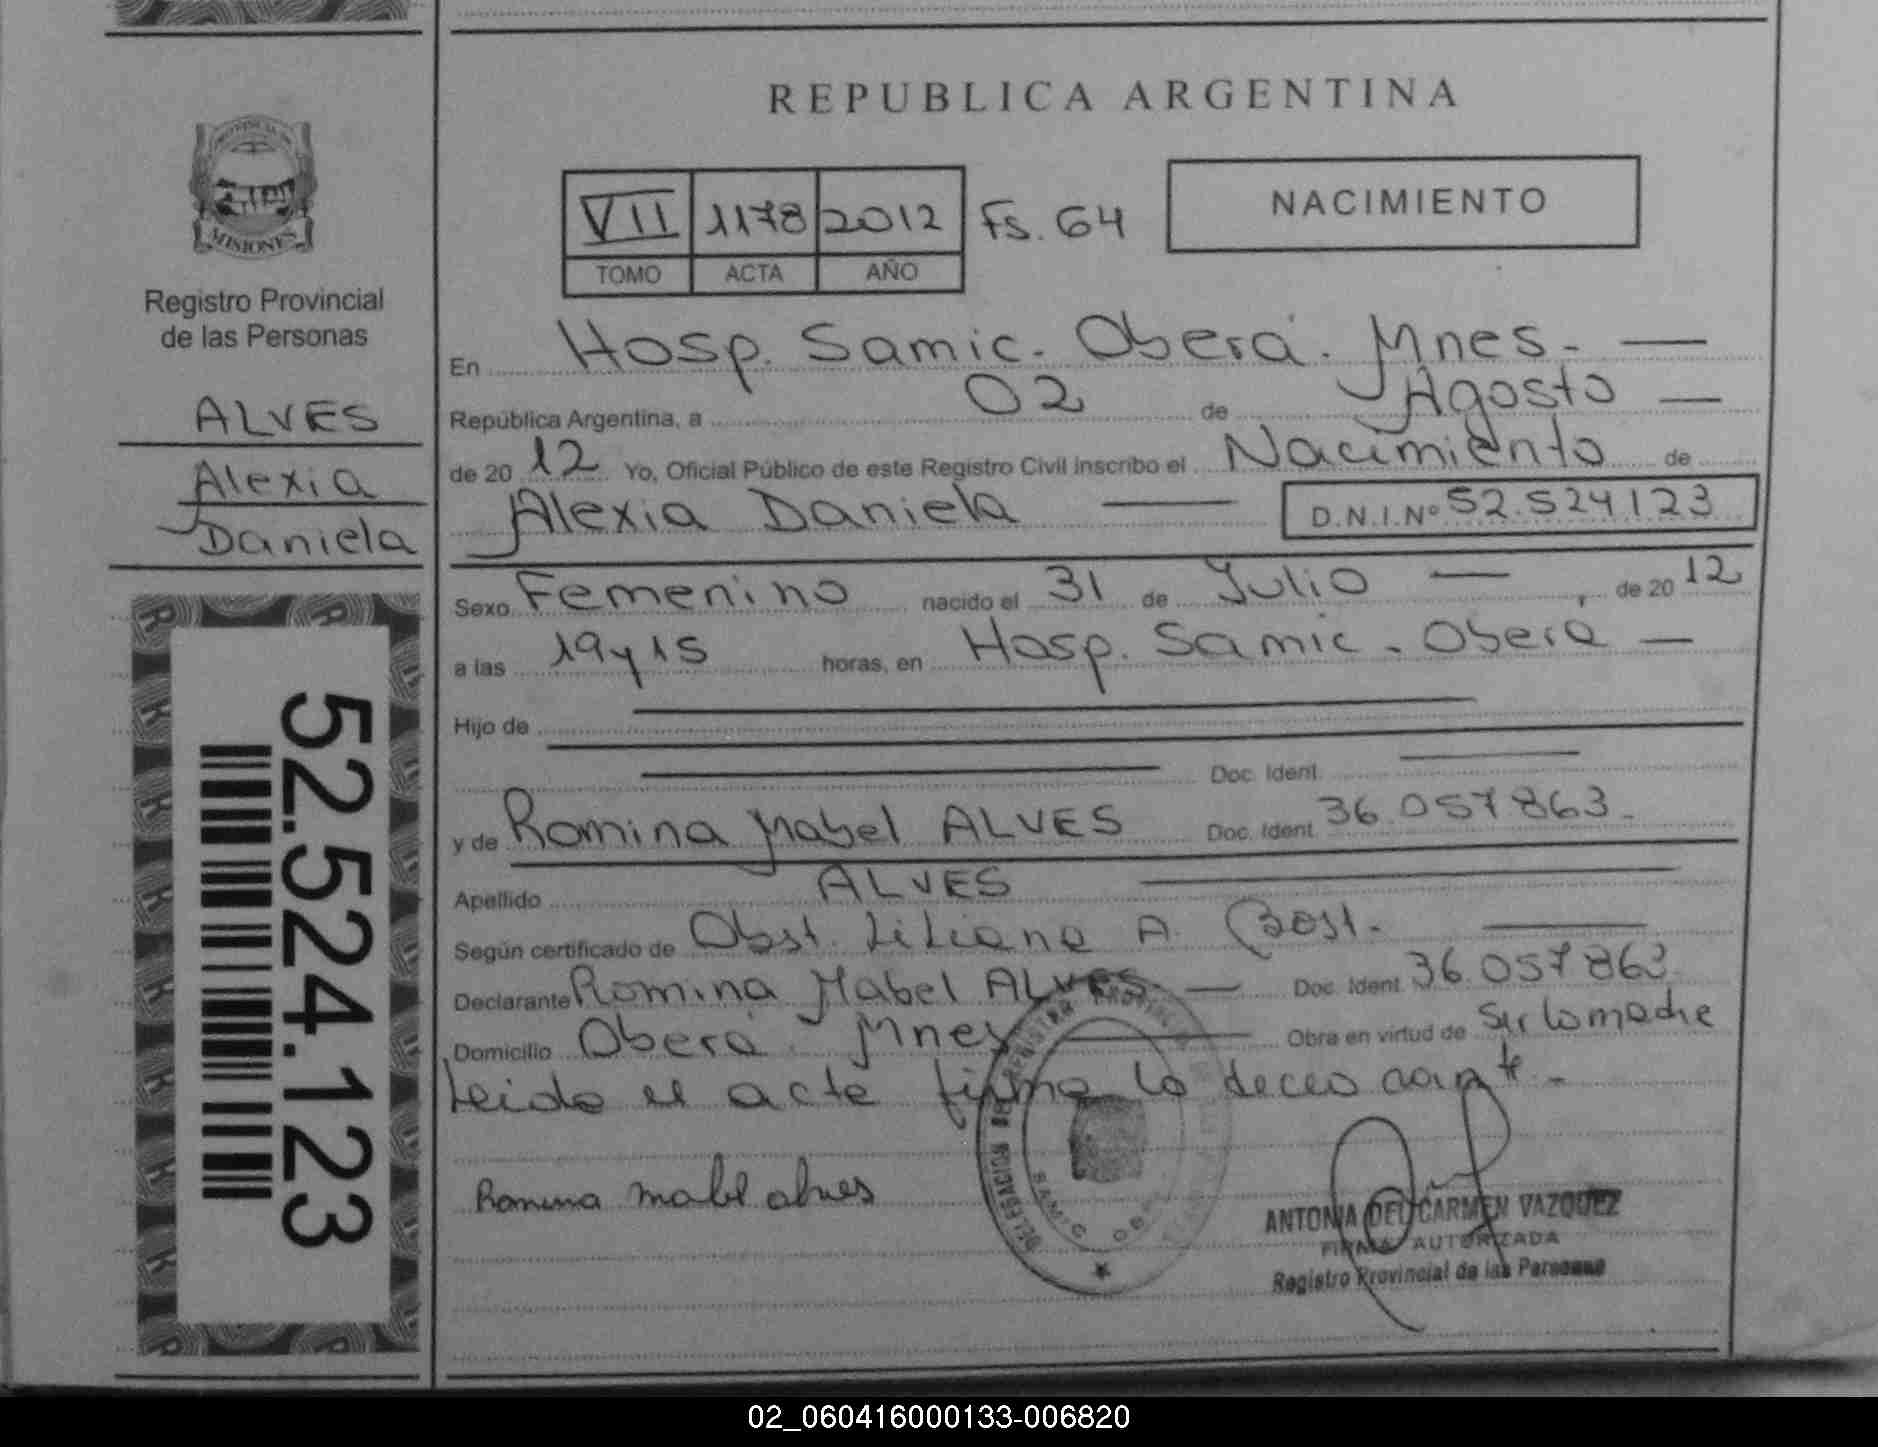 REPUBLICA ARGENTINA
PROVINCIA DE
MISIONES
Registro Provincial
de las Personas
ALVES
Alexia
Daniela
52.524.123
VII 1178 2012 Fs. 64
TOMO ACTA AÑO
NACIMIENTO
En Hosp. Samic. Oberá. Mnes.
República Argentina, a 02 de Agosto
de 20 12 Yo, Oficial Público de este Registro Civil inscribo el Nacimiento de
Alexia Daniela D.N.I.Nº 52.524123
Sexo Femenino nacido el 31 de Julio, de 20 12
a las 19 y 15 horas, en Hosp. Samic. Oberá
Hijo de
Doc. Ident.
y de Romina Mabel ALVES Doc. Ident. 36.057863.
Apellido ALVES
Según certificado de Obst. Liliana A.
Declarante Romina Mabel ALVES. Doc. Ident. 36.057863
Domicilio Oberá Mnes Obra en virtud de Ser la madre
Leida el acta firma la
Romina mabel alves
DELEGACION
SAMIC
ANTONIA DEL CARMEN VAZQUEZ
FIRMA AUTORIZADA
Registro Provincial de las Personas
02_060416000133-006820